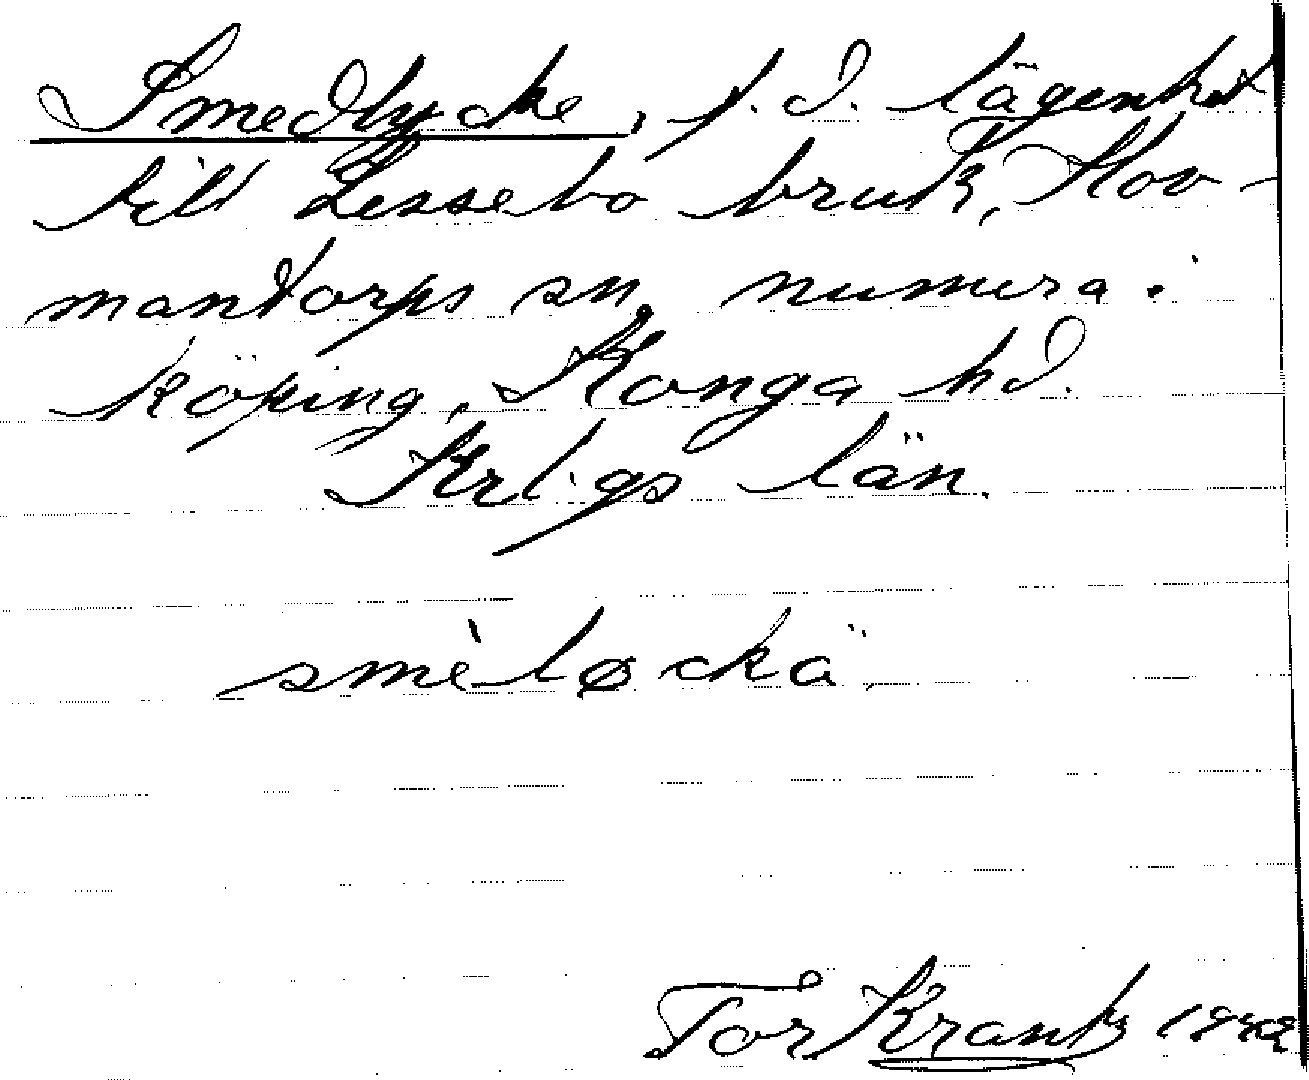 Smedlycke, f. d. lägenhet
till Lessebo bruk, Hov-
mantorps sn, numera i
köping, Konga hd.
Krbgs län.
smèløckä
Tor Krantz